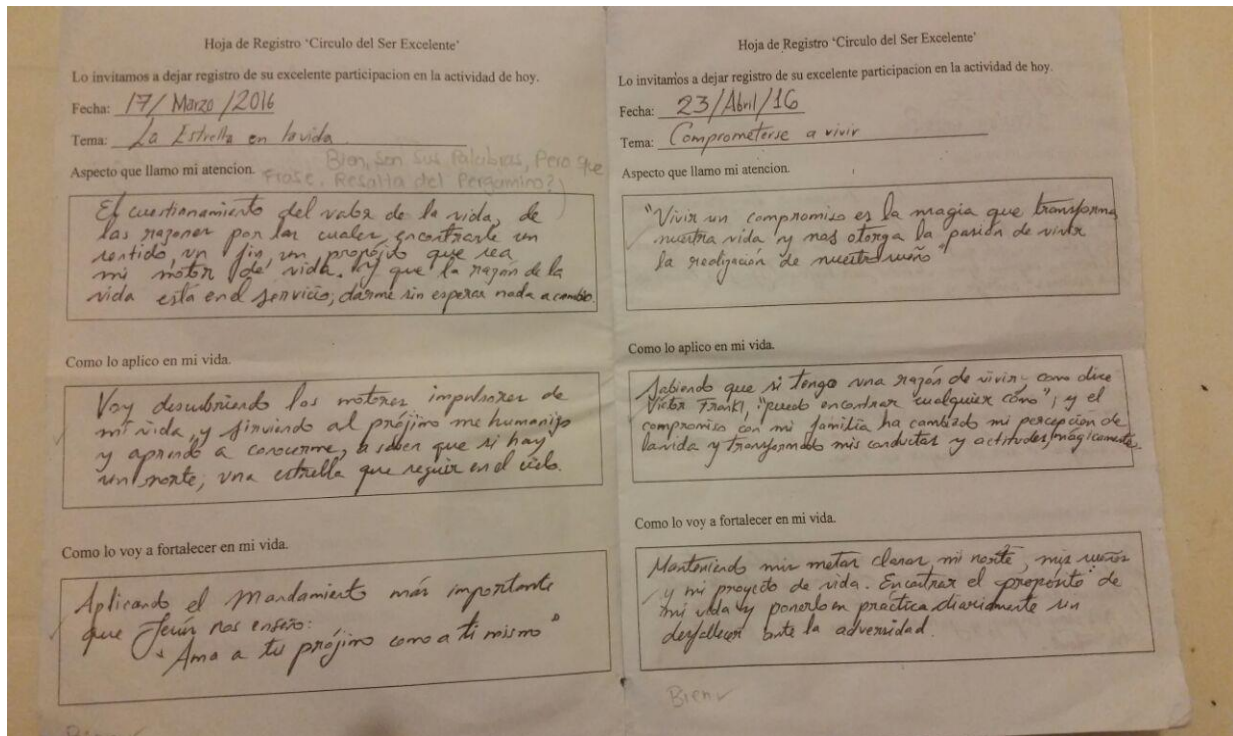 Hoja de Registro 'Circulo del Ser Excelente'
Lo invitamos a dejar registro de su excelente participacion en la actividad de hoy.
Fecha: 17/Marzo/2016
Tema: La Estrella en la vida
Bien, Son Sus Palabras, Pero que
Aspecto que llamo mi atencion.
Frase, Resalta del Pergamino?)
El cuestionamiento del valor de la vida, de
las razones por las cuales, encontrarle un
sentido, un fin, un propósito que sea
mi motor de vida. Y que la razón de la
vida esta en el servicio, darme sin esperar nada a cambio.
Como lo aplico en mi vida.
Voy descubriendo los motores impulsores de
mi vida, y sirviendo al prójimo me humanizo
y aprendo a conocerme, a saber que si hay
un norte, una estrella que seguir en el cielo.
Como lo voy a fortalecer en mi vida.
Aplicando el mandamiento más importante
que Jesús nos enseño:
"Ama a tu prójimo como a ti mismo"
Hoja de Registro 'Circulo del Ser Excelente'
Lo invitamos a dejar registro de su excelente participacion en la actividad de hoy.
Fecha: 23/Abril/16
Tema: Comprometerse a vivir
Aspecto que llamo mi atencion.
"Vivir un compromiso es la magia que transforma
nuestra vida y nos otorga la pasión de vivir
la realización de nuestro sueño"
Como lo aplico en mi vida.
Sabiendo que si tengo una razón de vivir, como dice
Victor Frankl, "puedo encontrar cualquier cómo"; y el
compromiso con mi familia ha cambiado mi percepción de
la vida y transformado mis conductas y actitudes, mágicamente.
Como lo voy a fortalecer en mi vida.
Manteniendo mis metas claras, mi norte, mis sueños
y mi proyecto de vida. Encontrar el propósito de
mi vida y ponerlo en práctica diariamente sin
desfallecer ante la adversidad.
Bien